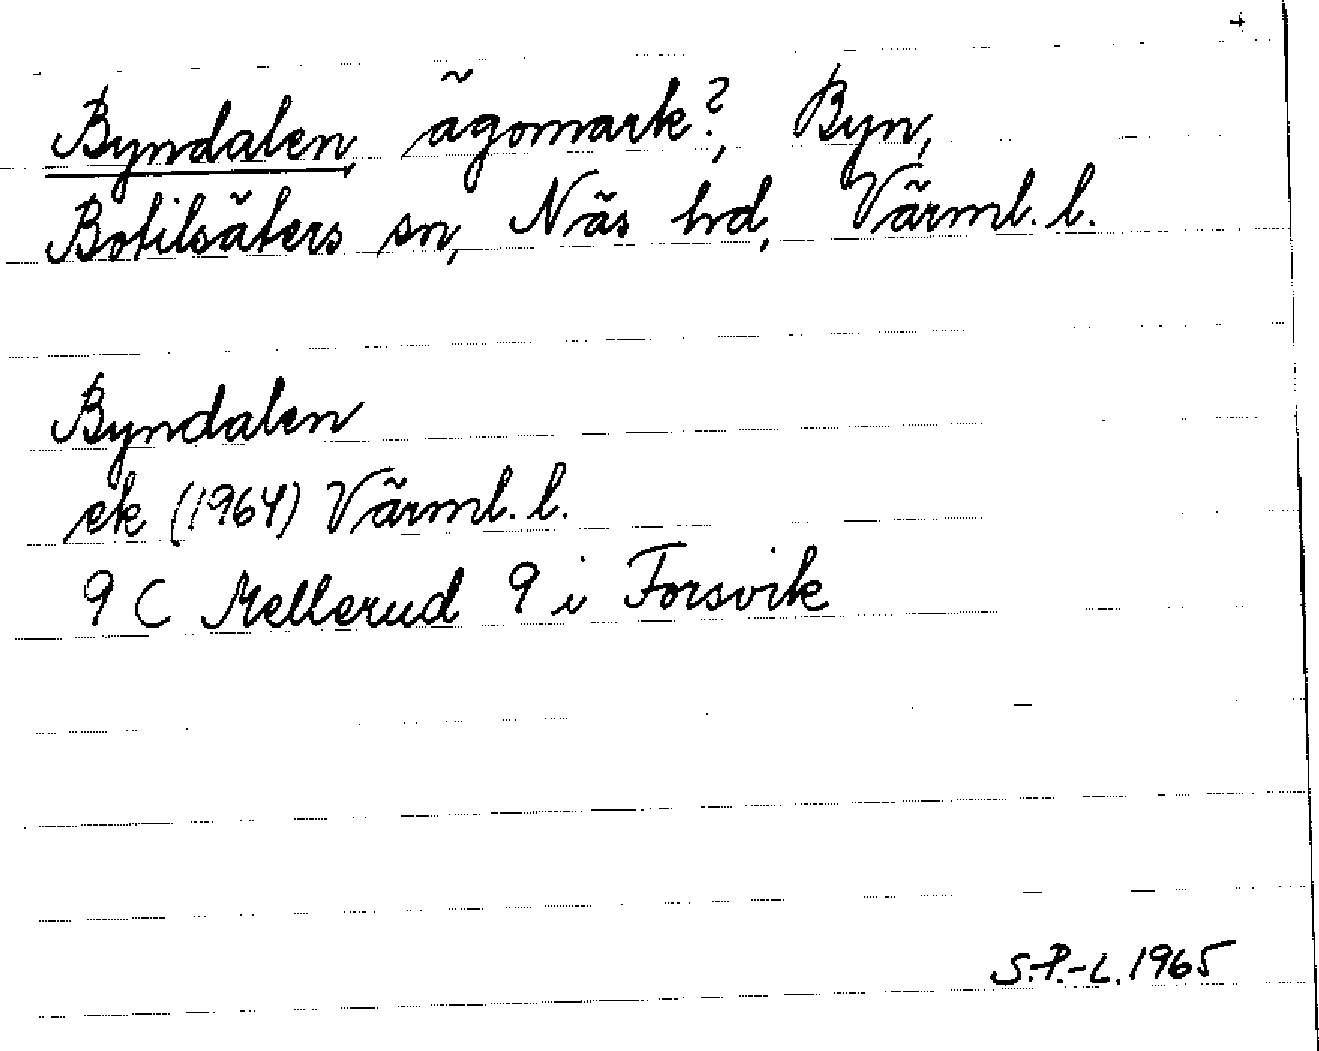 Byndalen, ägomark?, Byn,
Botilsäters sn, Näs hd, Värml. l.
Byndalen
ek (1964) Värml. l.
9 C Mellerud 9 i Forsvik
S.P.-L. 1965